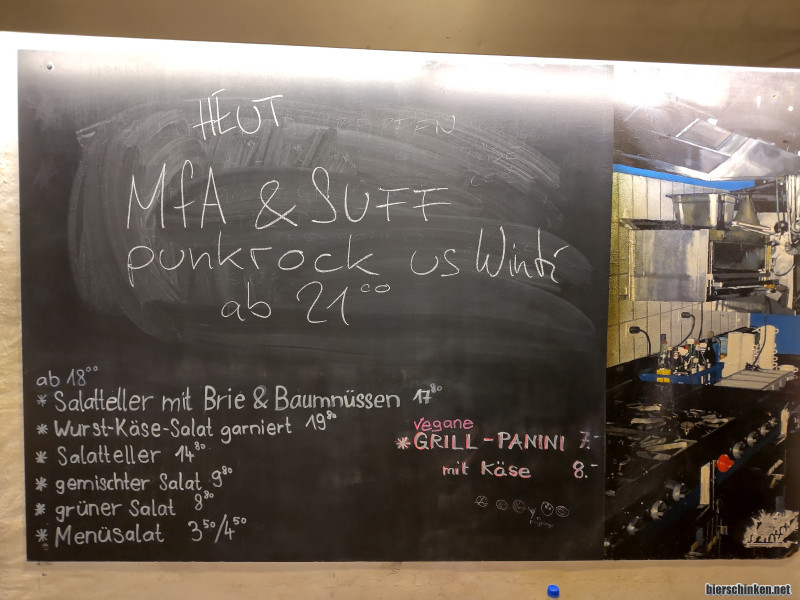 HEUT
MfA & SUFF
punkrock us Winti
ab 21⁰⁰
ab 18⁰⁰
* Salatteller mit Brie & Baumnüssen 17⁸⁰
* Wurst-Käse-Salat garniert 19⁸⁰
* Salatteller 14⁸⁰
* gemischter Salat 9⁸⁰
* grüner Salat 8⁸⁰
* Menüsalat 3⁵⁰/4⁵⁰
vegane
* GRILL-PANINI 7.-
mit Käse 8.-
bierschinken.net